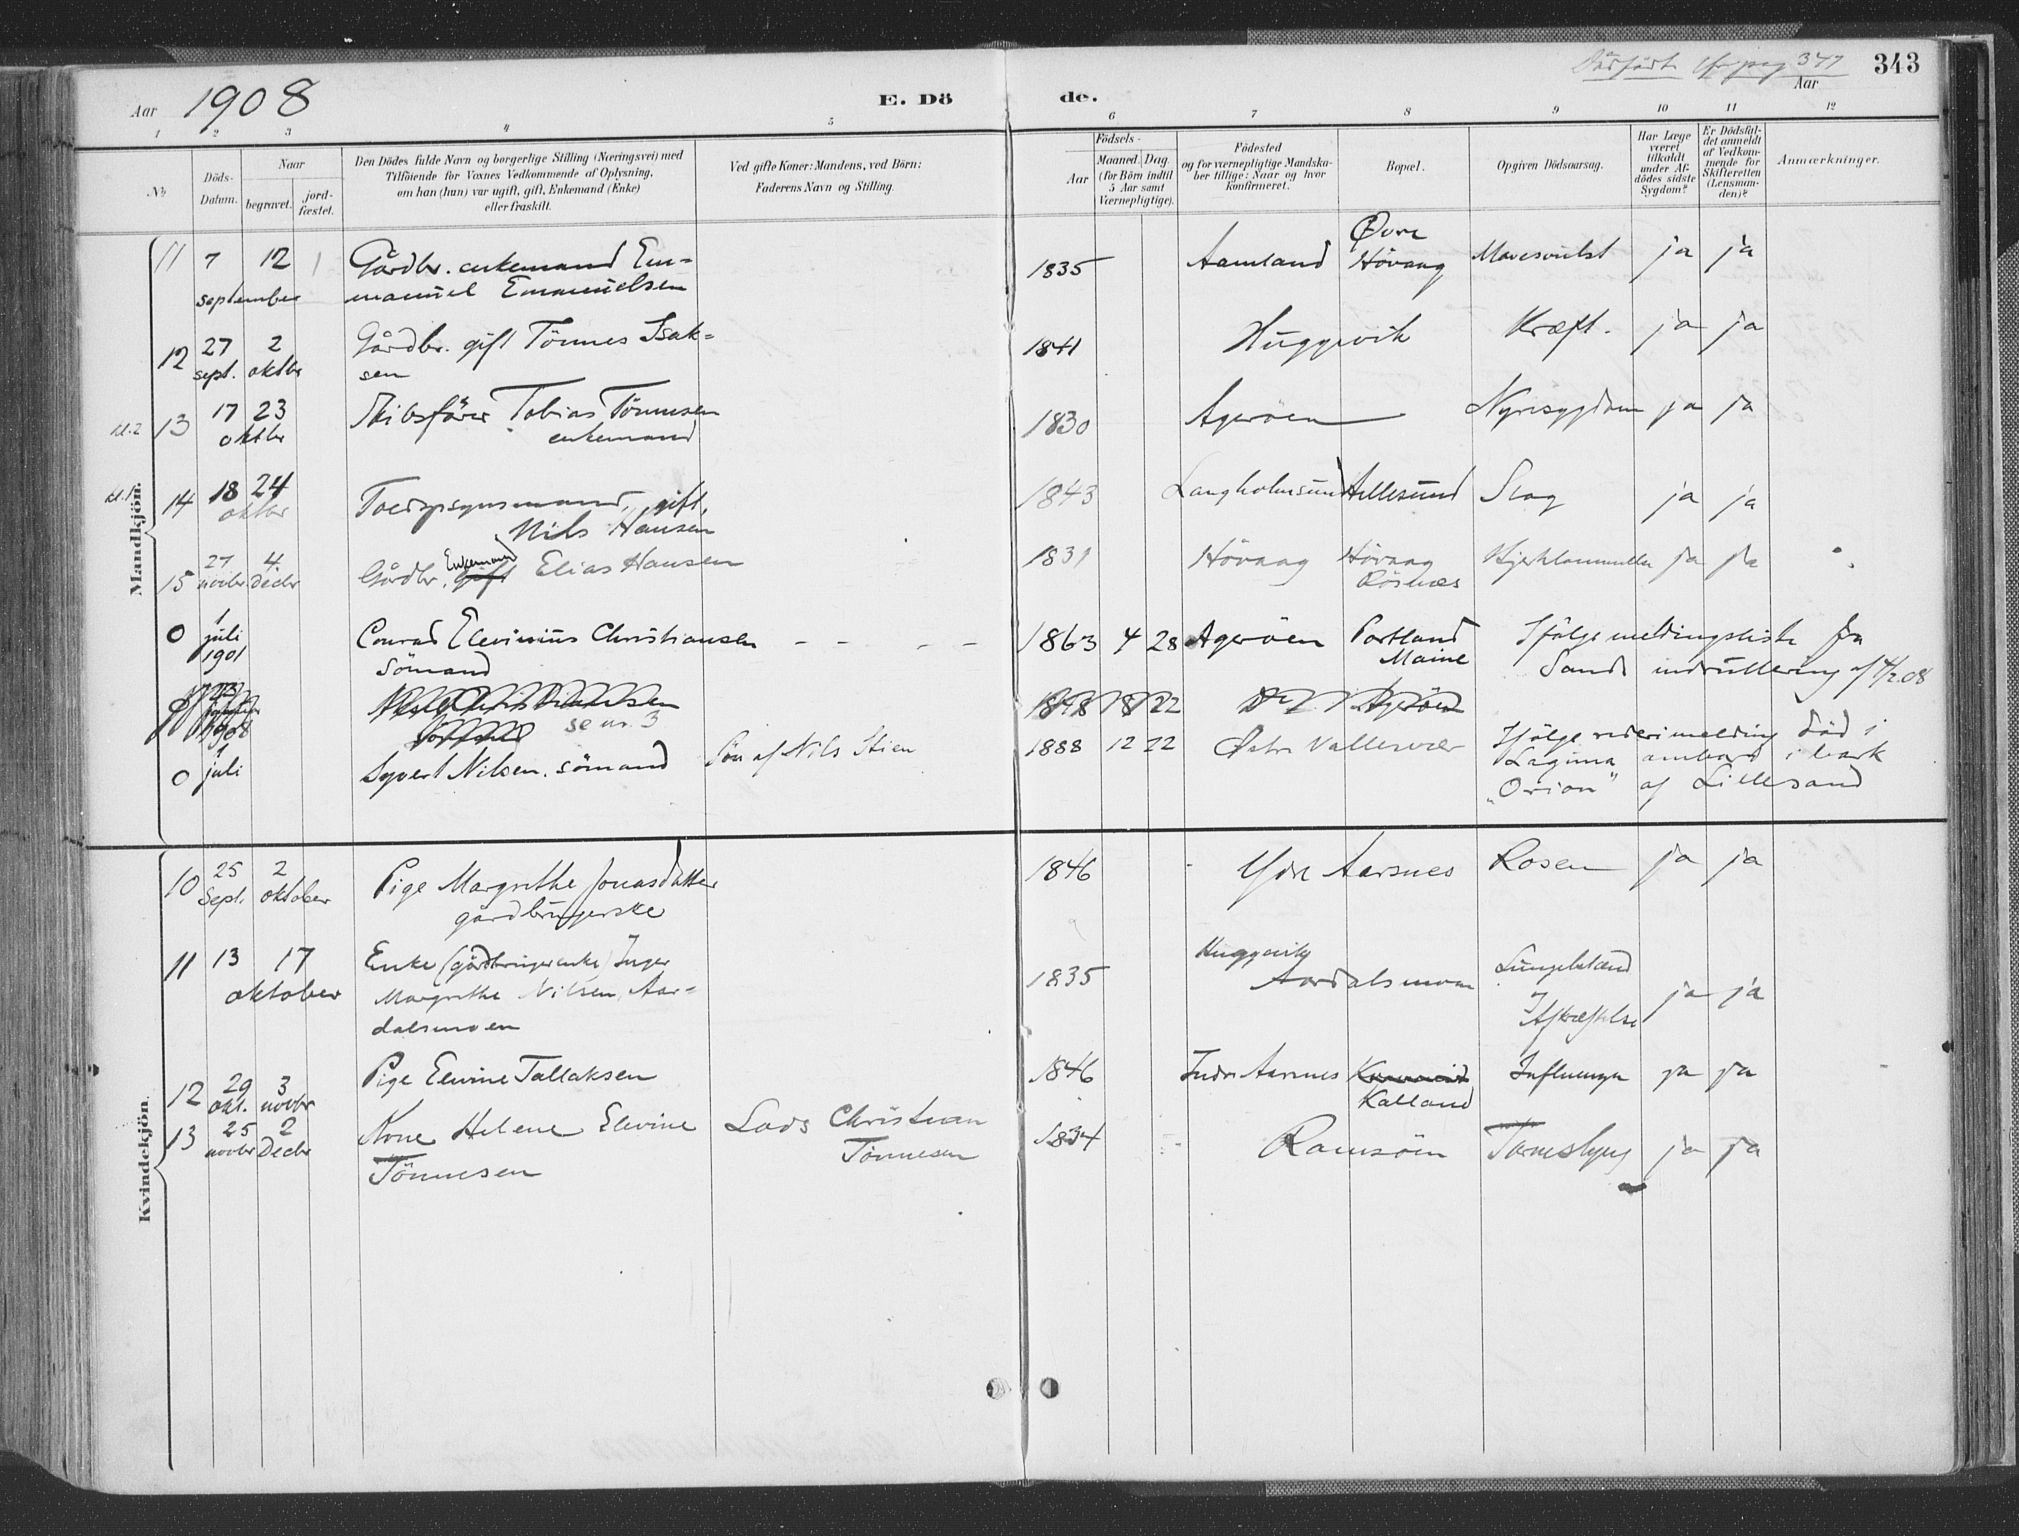 343
Aar 1908
E. Döde.
Aar
1 2 3 4 5 6 7 8 9 10 11 12
No.
Döds-
Datum.
Naar
begravet.
jord-
fæstet.
Den Dödes fulde Navn og borgerlige Stilling (Næringsvei) med
Tilföiende for Voxnes Vedkommende af Oplysning,
om han (hun) var ugift, gift, Enkemand (Enke)
eller fraskilt.
Ved gifte Koner: Mandens, ved Börn:
Faderens Navn og Stilling.
Födsels-
Aar
Maaned. Dag.
(for Börn indtil
5 Aar samt
Værnepligtige).
Födested
og for værnepligtige Mandska-
ber tillige: Naar og hvor
konfirmeret.
Bopæl.
Opgiven Dödsaarsag.
Har Læge
været
tilkaldt
under Af-
dödes sidste
Sygdom?
Er Dödsfal-
det anmeldt
af Vedkom-
mende for
Skifteretten
(Lensman-
den)?
Anmærkninger.
Mandkjön.
11 7 september 12 Gårdbr. enkemand Em-
manuel Emanuelsen 1835 Aamland Øvre Hövaag Mavesvulst ja ja
12 27 sept. 2 oktbr Gårdbr. gift Tönnes Isak-
sen 1841 Huggevik Kræft. ja ja
kl.2 13 17 23 oktbr Skibsförer Tobias Tönnesen
enkemand 1830 Agerøen Nyresygdom ja ja
14 18 24 oktbr gift,
Nils Hansen 1843 Langholmsund Hellesund Slag ja ja
15 27 novbr 4. Decbr Gårdbr. gift Enkemand Elias Hansen 1831 Hövaag Hövaag Rösnæs ja ja
0 1 juli 1901 Conrad Elevinius Christiansen
Sömand 1863 4 28 Agerøen Portland
Maine Ifölge meldingsliste fra
Sands indrullering af 4/2 08
1908 se nr. 3 22
0 1 juli Syvert Nilsen. sömand Sön af Nils Stien 1888 12 22 Östre Vallesvær Ifölge rederimelding död i
Laguna ombord i bark
"Orion" af Lillesand
Kvindekjön.
10 25 Sept. 2 oktober Pige Margrethe Jonasdatter
gårdbrugerske 1846 Ydre Aarsnes Rosen ja ja
11 13 17 oktober Enke (gårdbrugerenke) Inger
Margrethe Nilsen, Aar-
dalsmoen 1835 Huggevik
Aardalsmoen Lungebetænd
Afkræftelse ja ja
12 29 okt. 3 novbr Pige Elevine Tallaksen 1846 Indre Aarsnes
Kalland Influenza ja ja
13 25 novbr 2 Decbr Kone Helene Elevine
Tönnesen Lods Christian
Tönnesen 1834 Ramsöen ja ja